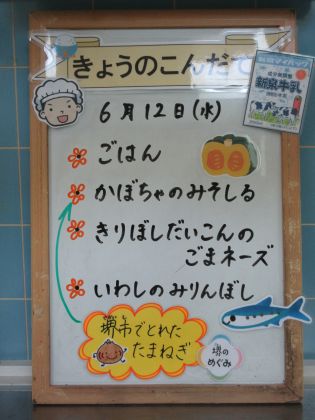 きょうのこんだて
6月12日(水)
ごはん
かぼちゃのみそしる
きりぼしだいこんの
ごまネーズ
いわしのみりんぼし
堺市でとれた
たまねぎ
堺の
めぐみ
新泉牛乳